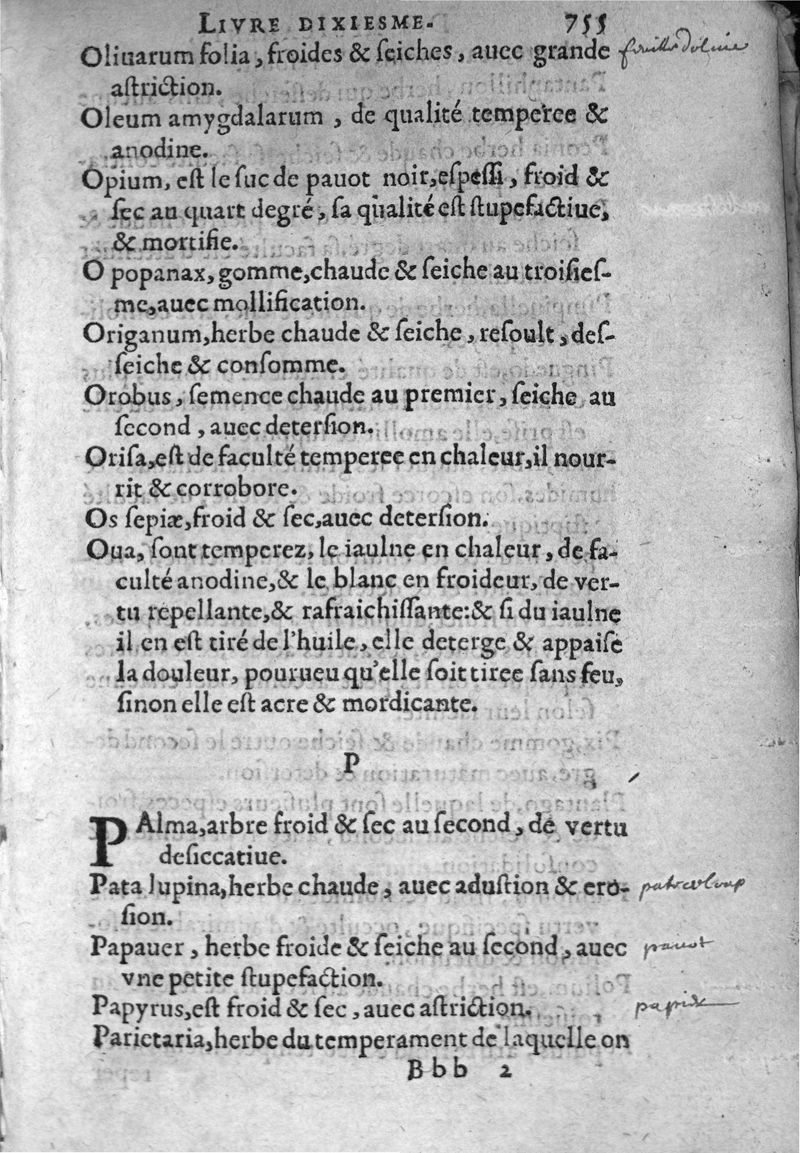 LIVRE DIXIESME. 755
Oliuarum folia, froides & ſeiches, auec grande
aſtriction.
Oleum amygdalarum , de qualité temperee &
anodine.
Opium, eſt le ſuc de pauot noir, eſpeſſi, froid &
ſec au quart degré, ſa qualité eſt ſtupefactiue,
& mortifie.
O popanax, gomme, chaude & ſeiche au troiſieſ-
me, auec mollification.
Origanum, herbe chaude & ſeiche, reſoult, deſ-
ſeiche & conſomme.
Orobus, ſemence chaude au premier, ſeiche au
ſecond , auec deterſion.
Oriſa, eſt de faculté temperee en chaleur, il nour-
rit & corrobore.
Os ſepiæ, froid & ſec, auec deterſion.
Oua, ſont temperez, le iaulne en chaleur, de fa-
culté anodine, & le blanc en froideur, de ver-
tu repellante, & rafraichiſſante: & ſi du iaulne
il en eſt tiré de l'huile, elle deterge & appaiſe
la douleur, pourueu qu'elle ſoit tiree ſans feu,
ſinon elle eſt acre & mordicante.
P
PAlma, arbre froid & ſec au ſecond, de vertu
deſiccatiue.
Pata lupina, herbe chaude, auec aduſtion & ero-
ſion.
Papauer, herbe froide & ſeiche au ſecond, auec pauot
vne petite ſtupefaction.
Papyrus, eſt froid & ſec, auec aſtriction.
Parietaria, herbe du temperament de laquelle on
Bbb 2